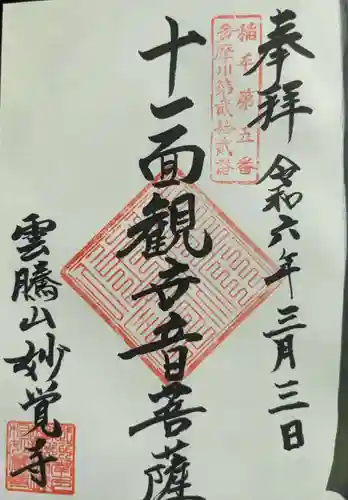 奉拝 令和六年三月三日
稲毛第五番
多摩川第貳拾貳
十一面観世音菩薩
雲騰山妙覚寺